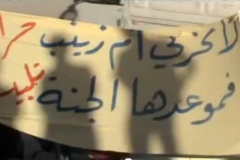 لا تحزني ام زينب حرا
فموعدها الجنة تلبيد